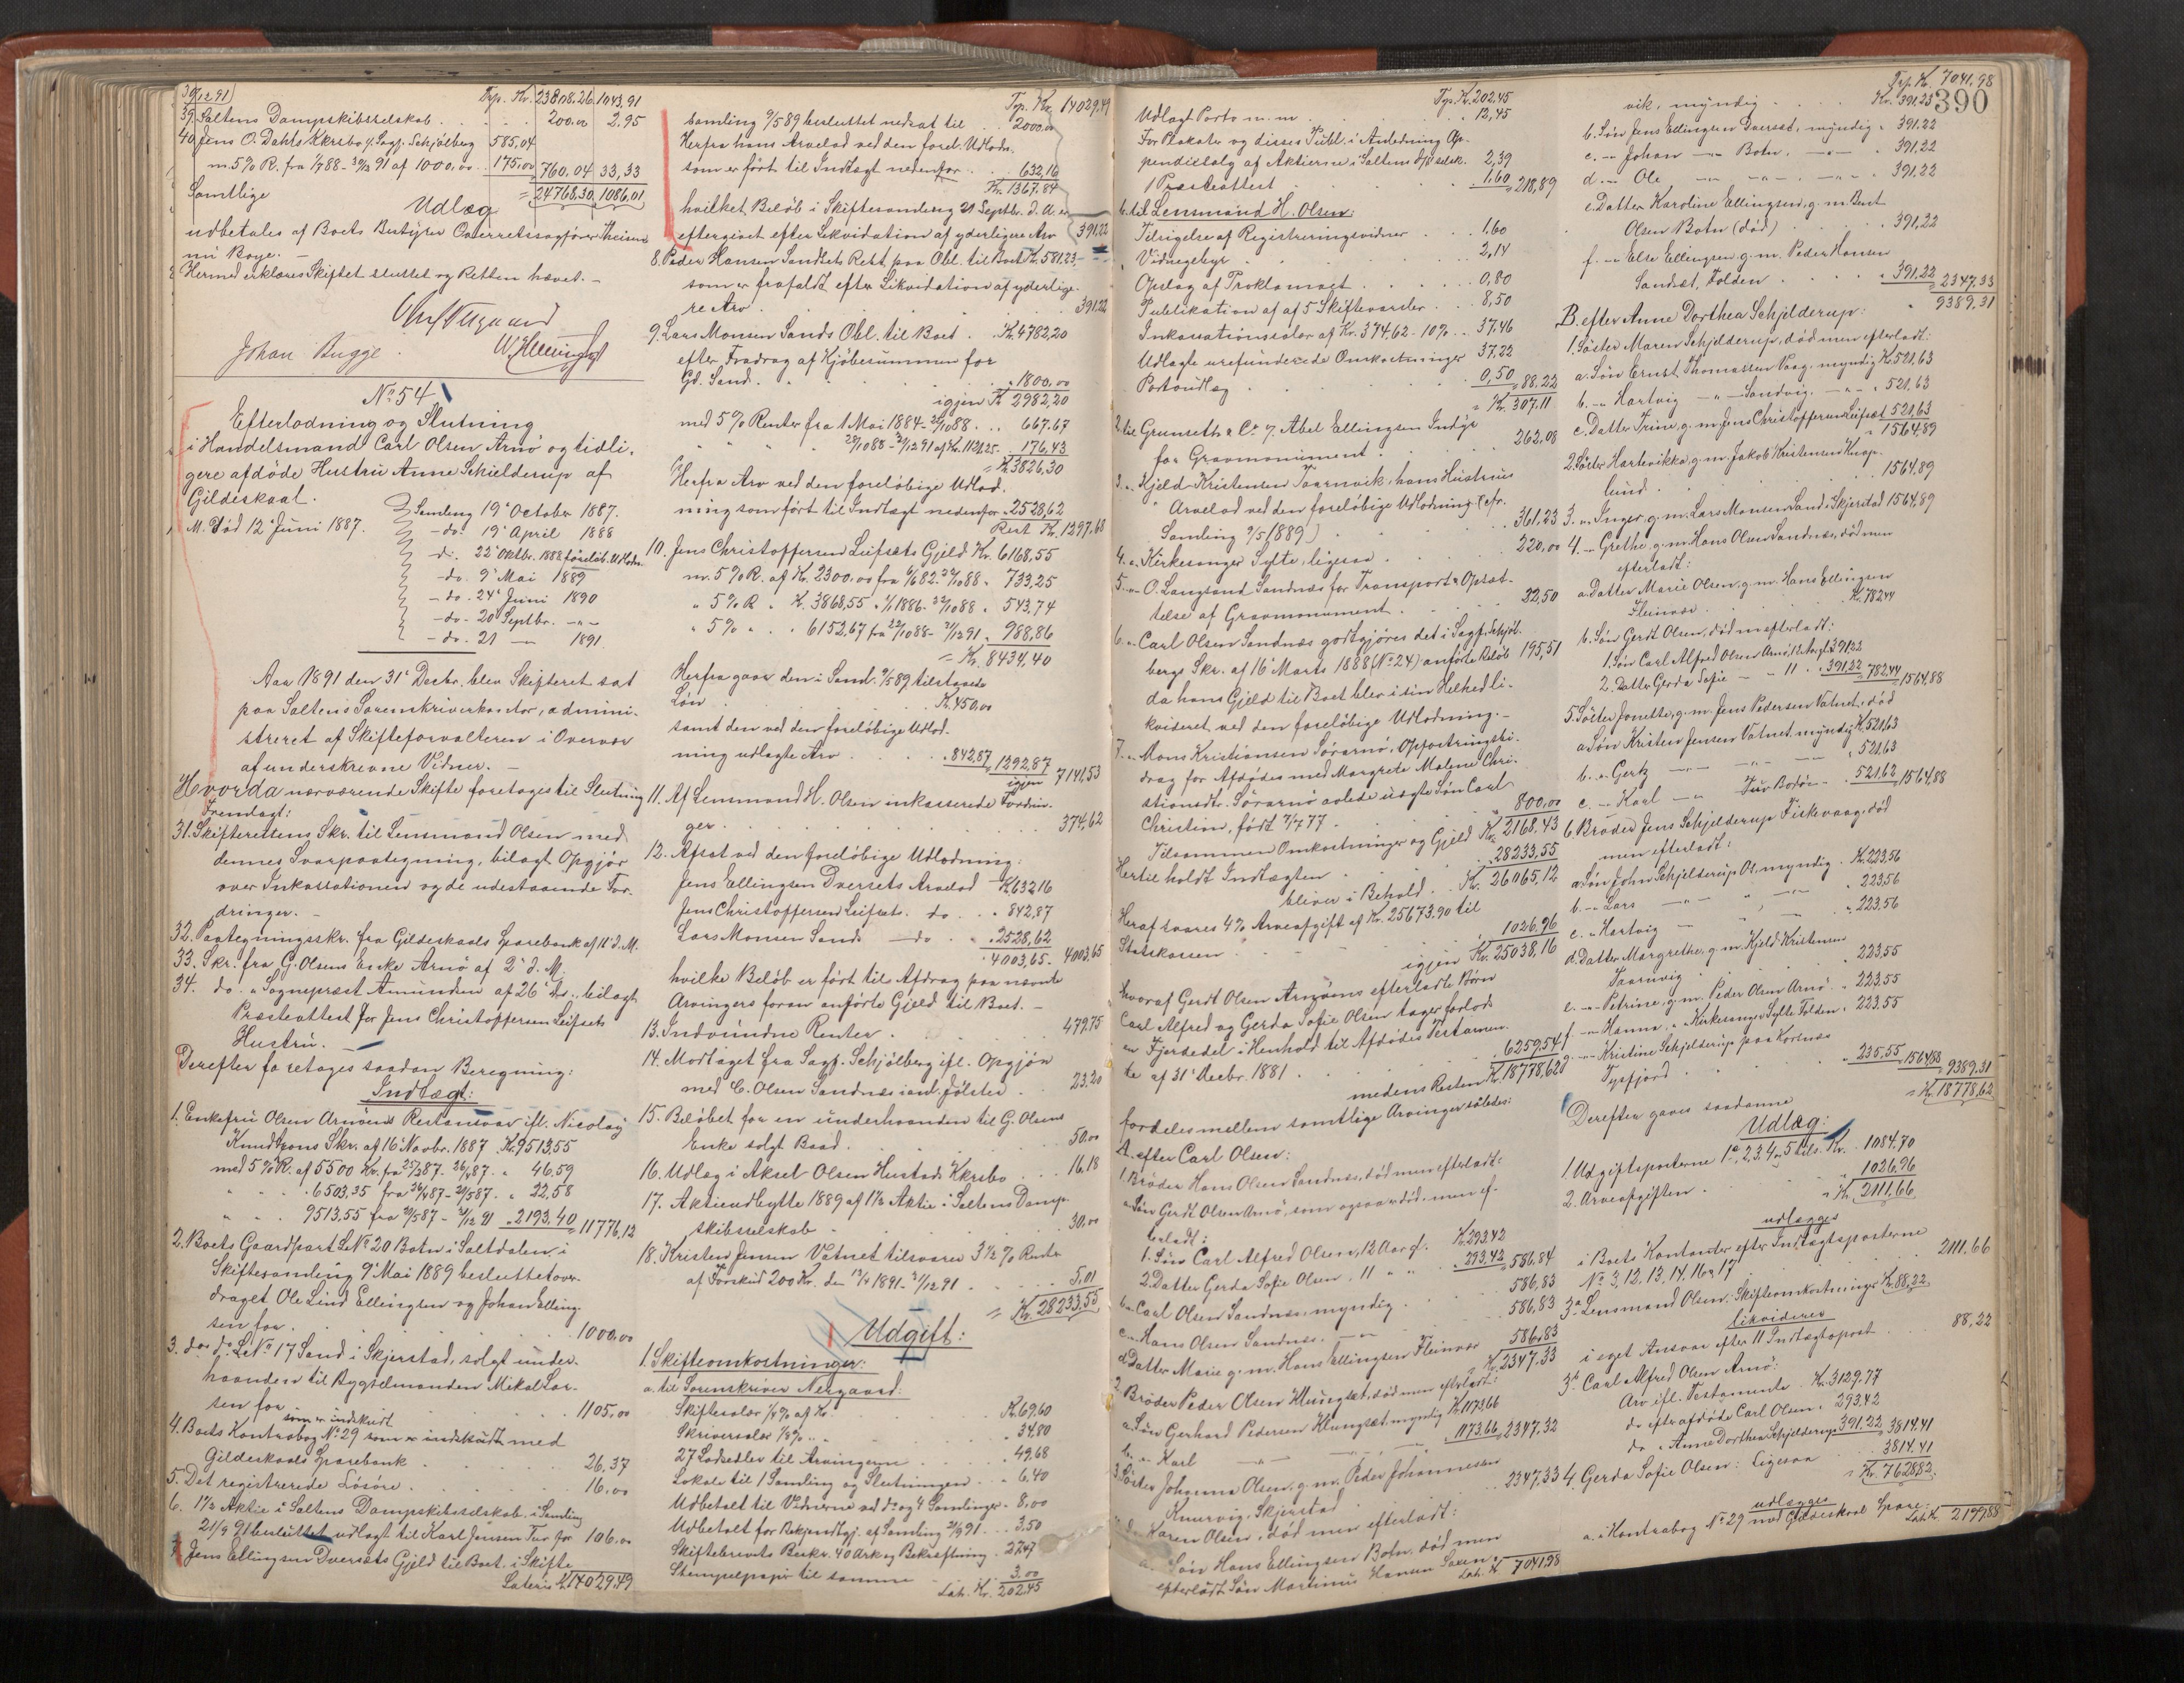 30/12 91
Trp. Kr. 23808.26 1043.91
39. Saltens Dampskibsselskab . . 200.00 2.95
40. Jens O. Dahls Kkrsbo v. Sagf. Schjölberg 585.04
m. 5% R. fra 1/7 88 - 30/12 91 af 1000.00 175.00 760.04 33,33
Samtlige = 24768.30 1086.01
Udlæg
udbetales af Boets Bestyrer Overretssagförer Theisen
nu Boye. -
Hermed erklæres Skiftet sluttet og Retten hævet. -
Johan Bugge.
No 54
Efterlodning og Slutning
i Handelsmand Carl Olsen Arnö og tidli-
gere afdöde Hustru Anne Schielderup af
Gildeskaal.
M. Död 12 Juni 1887.
Samling 19 October 1887.
- do. 19 April 1888
- do. 22 Oktbr. 1888 foreløb. Udlodn.
- do. 9 Mai 1889
- do. 24 Juni 1890
- do. 20 Septbr. -"-
- do. 21 — 1891.
Aar 1891 den 31 Decbr. blev Skifteret sat
paa Saltens Sorenskriverkontor, admini-
streret af Skifteforvalteren i Overvær
af underskrevne Vidner. -
Hvorda nærværende Skifte foretoges til Slutning
Fremlagt:
31. Skifterettens Skr. til Lensmand Olsen med
dennes Svarpaategning, bilagt Opgjör
over Inkassationen og de udestaaende For-
dringer. -
32. Paategningsskr. fra Gildeskaals Sparebank af 11 d. M.
33. Skr. fra G. Olsens Enke Arnö af 2 d. M.
34. do. " Sognepræst Amundsen af 26 ds., bilagt
Præsteattest for Jens Christoffersen Leifsets
Hustru. -
Derefter foretoges saadan Beregning:
Indtægt:
1. Enkefru Olsen Arnöens Restansvar ifl. Nicolay
Knudtzons Skr. af 16 Novbr. 1887 Kr. 9513,55
med 5% R. af 5500 Kr. fra 25/2 87 - 26/4 87 . " 46 59
" " . 6503.35 fra 26/4 87 - 20/5 87 . " 22,58
" " 9513,55 fra 20/5 87 - 31/12 91 . 2193.40 = 11776,12
2. Boets Gaardpart L.No 20 Botn i Saltdalen, i
Skiftesamling 9 Mai 1889 besluttet over-
draget Ole Lind Ellingsen og Johan Elling-
sen for . . . 1000.00
3. do. do. L.No 17 Sand i Skjerstad, solgt under-
haanden til Bygselmanden Mikal Lar-
sen for . . . 1105,00
4. Boets Kontrabog No 29 som er indskudt med
Gildeskaals Sparebank . . 26.37
5. Det registrerede Lösöre . . 16.00
6. 1½ Aktie i Saltens Dampskibsselskab i Samling
21/9 91 besluttet udlagt til Karl Jensen Tuv for 106.00
7. Jens Ellingsen Dversets Gjeld til Boet i Skifte
Lateris Kr. 14029.49
Trp. Kr. 14029.49
samling 9/5 89 besluttet nedsat til . . 2000.00
Herfra hans Arvelod ved den forel. Udlodn.
som er fört til Indtægt nedenfor . . 632,16
Kr. 1367.84
hvilket Belöb i Skiftesamling 21 Septbr. d. A. er
eftergivet efter Likvidation af yderligere Arv 391.22
8. Peder Hansen Sandsets Rest paa Obl. til Boet Kr. 581.23 -
som er frafaldt efter Likvidation af yderlige-
re Arv . . . 391.22
9. Lars Monsen Sands Obl. til Boet . . Kr. 4782,20
efter Fradrag af Kjöbesummen for
Gd. Sand. . . " 1800.00
igjen Kr. 2982,20
med 5% Renter fra 1 Mai 1884 - 22/10 88 . . . 667.67
" " 22/10 88 - 31/12 91 af Kr. 1121,25 - 176,43
= Kr. 3826,30
Herfra Arv ved den foreløbige Udlod-
ning som fört til Indtægt nedenfor " 2528,62
Rest Kr. 1297.68
10. Jens Christoffersen Leifsets Gjeld Kr. 6168,55
m. 5% R. af Kr. 2300.00 fra 6/6 82 - 22/10 88 " 733,25
" 5% R " K. 3868,55 " 1/1 1886 - 22/10 88 " 543.74
" 5% " . . 6152,67 fra 22/10 88 - 31/12 91 " 988,86
= Kr. 8434,40
Herfra gaar den i Saml. 9/5 89 tilstaaede
Lön . . . Kr. 450,00
samt den ved den foreløbige Udlod-
ning udlagte Arv . . " 842,87 1292,87
igjen 7141,53
11. Af Lensmand H. Olsen inkasserede Fordrin-
ger . . . 374,62
12. Afsat ved den foreløbige Udlodning:
Jens Ellingsen Dversets Arvelod Kr. 632 16
Jens Christoffersen Leifsets do . . 842,87
Lars Monsen Sands — do . . 2528,62
4003,65 - 4003,65
hvilke Belöb er fört til Afdrag paa nævnte
Arvingers foran anförte Gjeld til Boet. -
13. Indvundne Renter . . . 479.75
14. Modtaget fra Sagf. Schjölberg ifl. Opgjör
med C. Olsen Sandnæs . . . 23.20
15. Belöbet for en underhaanden til G. Olsens
Enke solgt Baad . . 50.00
16. Udlæg i Aksel Olsen Hustads Kkrsbo . . 16.18
17. Aktieudbytte 1889 af 1½ Aktie i Saltens Damp-
skibsselskab . . 30,00
18. Kristen Jensen Vatnet tilsvarer 3½% Rente
af Forskud 200 Kr. den 12/4 1891 - 31/12 91 . . 5.01
= Kr. 28233.55
Udgift:
1. Skifteomkostninger:
a. til Sorenskriver Nergaard:
Skiftesalær 1/4% af K. . . Kr. 69.60
Skriversalær 1/8% . . . 34.80
27 Lodsedler til Arvingerne . . 49,68
Lokale til 1 Samling og Slutningen . . 6.40
Udbetalt til Vidnerne ved do. og 4 Samlinger . 8,00
Udbetalt for Bekjendtgj. af Samling 21/9 91 . . . 3.50
Skiftebrevets Beskr. 40 Ark og Bekræftning . 27.47
Stempelpapir til samme . . 3.00
Lat. Kr. 202.45
Trp. Kr. 202.45
Udlagt Porto m. m. . . 12,45
For Plakater og disses Publ. i Anledning Op-
pendiesalg af Aktierne i Saltens D/p selsk. 2,39
1 Præsteattest . . 1.60 218,89
b. til Lensmand H. Olsen:
Tilsigelse af Registreringsvidner . . 1.60
Vidnegebyr . . 2,14
Opslag af Proklamaet . . 0,80
Publikation af af 5 Skiftevarsler . . 8.50
Inkassationssalær af Kr. 374.62 - 10% . . 37.46
Udlagte urefunderede Omkostninger 37.22
Portoudlæg . . 0,50 = 88.22
= Kr. 307.11
2. til Grunseth & Co v. Abel Ellingsen Indyr
for Gravmonument . . 262.08
3. " Kjeld Kristensen Taarnvik, hans Hustrus
Arvelod ved den foreløbige Udlodning (cfr.
Samling 9/5 1889) . . 361.23
4. " Kirkesanger Sylte, ligesaa . . 220,00
5. " O. Langsand Sandnæs for Transport & Opsæt-
telse af Gravmonument . . 22,50
6. " Carl Olsen Sandnæs godtgjöres det i Sagf. Schjöl-
bergs Skr. af 16 Marts 1888 (No 24) anförte Belöb 195,51
da hans Gjeld til Boet blev i sin Helhed li-
kvideret ved den foreløbige Udlodning. -
7. " Mons Kristiansen Sörarnö, Opfostringsbi-
drag for Afdödes med Margrete Malene Chri-
stiansdtr. Sörarnö avlede uægte Sön Carl
Christian, födt 7/4 77 . . " 800,00
Tilsammen Omkostninger og Gjeld Kr. 2168.43
Hertil holdt Indtægten . . 28233,55
bliver i Behold . . Kr. 26065,12
Heraf svares 4% Arveafgift af Kr. 25673.90 til
Statskassen . . . 1026,96
igjen Kr. 25038,16
hvoraf Gerdt Olsen Arnöens efterladte Börn
Carl Alfred og Gerda Sofie Olsen tager forlods
en Fjerdedel i Henhold til Afdödes Testamen-
te af 31 Decbr. 1881 . . . 6259,54
medens Resten Kr. 18778,62
fordeles mellem samtlige Arvinger således:
A. efter Carl Olsen:
1. Broder Hans Olsen Sandnæs, död men efterladt:
a. Sön Gerdt Olsen Arnö, som ogsaa er död, men ef-
terladt:
1. Sön Carl Alfred Olsen, 12 Aar gl. Kr. 293.42
2. Datter Gerda Sofie Olsen, 11 " " . 293,42 586,84
b. " Carl Olsen Sandnæs, myndig . . 586,83
c. " Hans Olsen Sandnæs. — " — . . 586,83
d. Datter Marie g. m. Hans Ellingsen Fleinvær 586.83
Kr. 2347.33
2. Broder Peder Olsen Klungset, död men efterladt:
a. Sön Gerhard Pedersen Klungset, myndig Kr. 1173 66
b. " Karl — " — . 1173.66 2347.32
3. Söster Johanna Olsen, g. m. Peder Johannessen
Knurvig, Skjerstad . . 2347,33
Karen Olsen, död men efterladt:
a. Sön Hans Ellingsen Botn, död men
efterladt Sön Martinus Hansen Saxen-
Lat. Kr. 7041.98
Trp. Kr. 7041.98
390
vik, myndig . . . Kr. 391.23
b. Sön Jens Ellingsen Dverset, myndig . 391.22
c. " Johan — " — Botn. — " — . 391.22
d. " Ole — " — — " — . 391.22
e. Datter Karoline Ellingsen, g. m. Bent
Olsen Botn (död) . . . 391,22
f. " Else Ellingsen g. m. Peder Hansen
Sandset, Folden . . . 391.22 2347.33
" 9389.31
B. efter Anne Dorthea Schjelderup:
1. Söster Maren Schjelderup, död men efterladt:
a. Sön Ernst Thomassen Vaag, myndig Kr. 521,63
b. " Hartvig — " — Sandvig. — " — . 521.63
c. Datter Trine g. m. Jens Christoffersen Leifset 521,63
" 1564,89
2. Söster Hartvikka g. m. Jakob Kristensen Knap-
lund . . . 1564.89
3. " Inger, g. m. Lars Monsen Sand i Skjerstad 1564,89
4. " Grethe, g. m. Hans Olsen Sandnæs, död men
efterladt:
a. Datter Marie Olsen, g. m. Hans Ellingsen
Fleinvær . . . Kr. 782.44
b. Sön Gerdt Olsen, död m. efterladt:
1. Sön Carl Alfred Olsen Arnö 12 Aar gl. 391.22
2. Datter Gerda Sofie — " 11 . . 391.22 782,44 1564,88
5. Söster Jonette, g. m. Jens Pedersen Vatnet, död
a. Sön Kristen Jensen Vatnet, myndig Kr. 521.63
b. " Gertz — " — — " — . 521.63
c. " Karl — " — Tuv Bodö - . 521.62 1564,88
6. Broder Jens Schjelderup Fiskevaag, död
men efterladt:
a. Sön John Schjelderup Ol, myndig . Kr. 223.56
b. " Lars — " — . 223.56
c. " Hartvig — . 223.56
d. Datter Margrethe, g. m. Kjeld Kristensen
Taarnvig . . 223.55
e. " Petrine, g. m. Peder Olsen Arnö . " 223.55
f. " Hanna, " " Kirkesanger Sylte Folden . 223.55
g. " Kristine Schjelderup paa Korsnæs
Tysfjord . . . 223,55 1564,88 9389,31
= Kr. 18778,62
Derefter gaves saadanne
Udlæg:
1. Udgiftsposterne 1a, 2, 3, 4 & 5 tils. Kr. 1084,70
2. Arveafgiften . . . 1026,96
= Kr. 2111,66
udlægges
i Boets Kontanter efter Indtægtsposterne
No. 3, 12, 13, 14, 16 & 17 . . 2111.66
3a. Lensmand Olsen: Skifteomkostninger Kr. 88,22
likvideres
i eget Ansvar efter 11 Indtægtspost . . 88,22
3b. Carl Alfred Olsen Arnö:
Arv ifl. Testamente . Kr. 3129.77
do. eftr afdöde Carl Olsen . 293,42
do. " Anne Dorthea Schjelderup 391.22 3814.41
4. Gerda Sofie Olsen: Ligesaa . . 3814.41
= Kr. 7628.82
udlægges
a. i Kontrabog No 29 med Gildeskaal Spare-
Lat. Kr. 2199,88